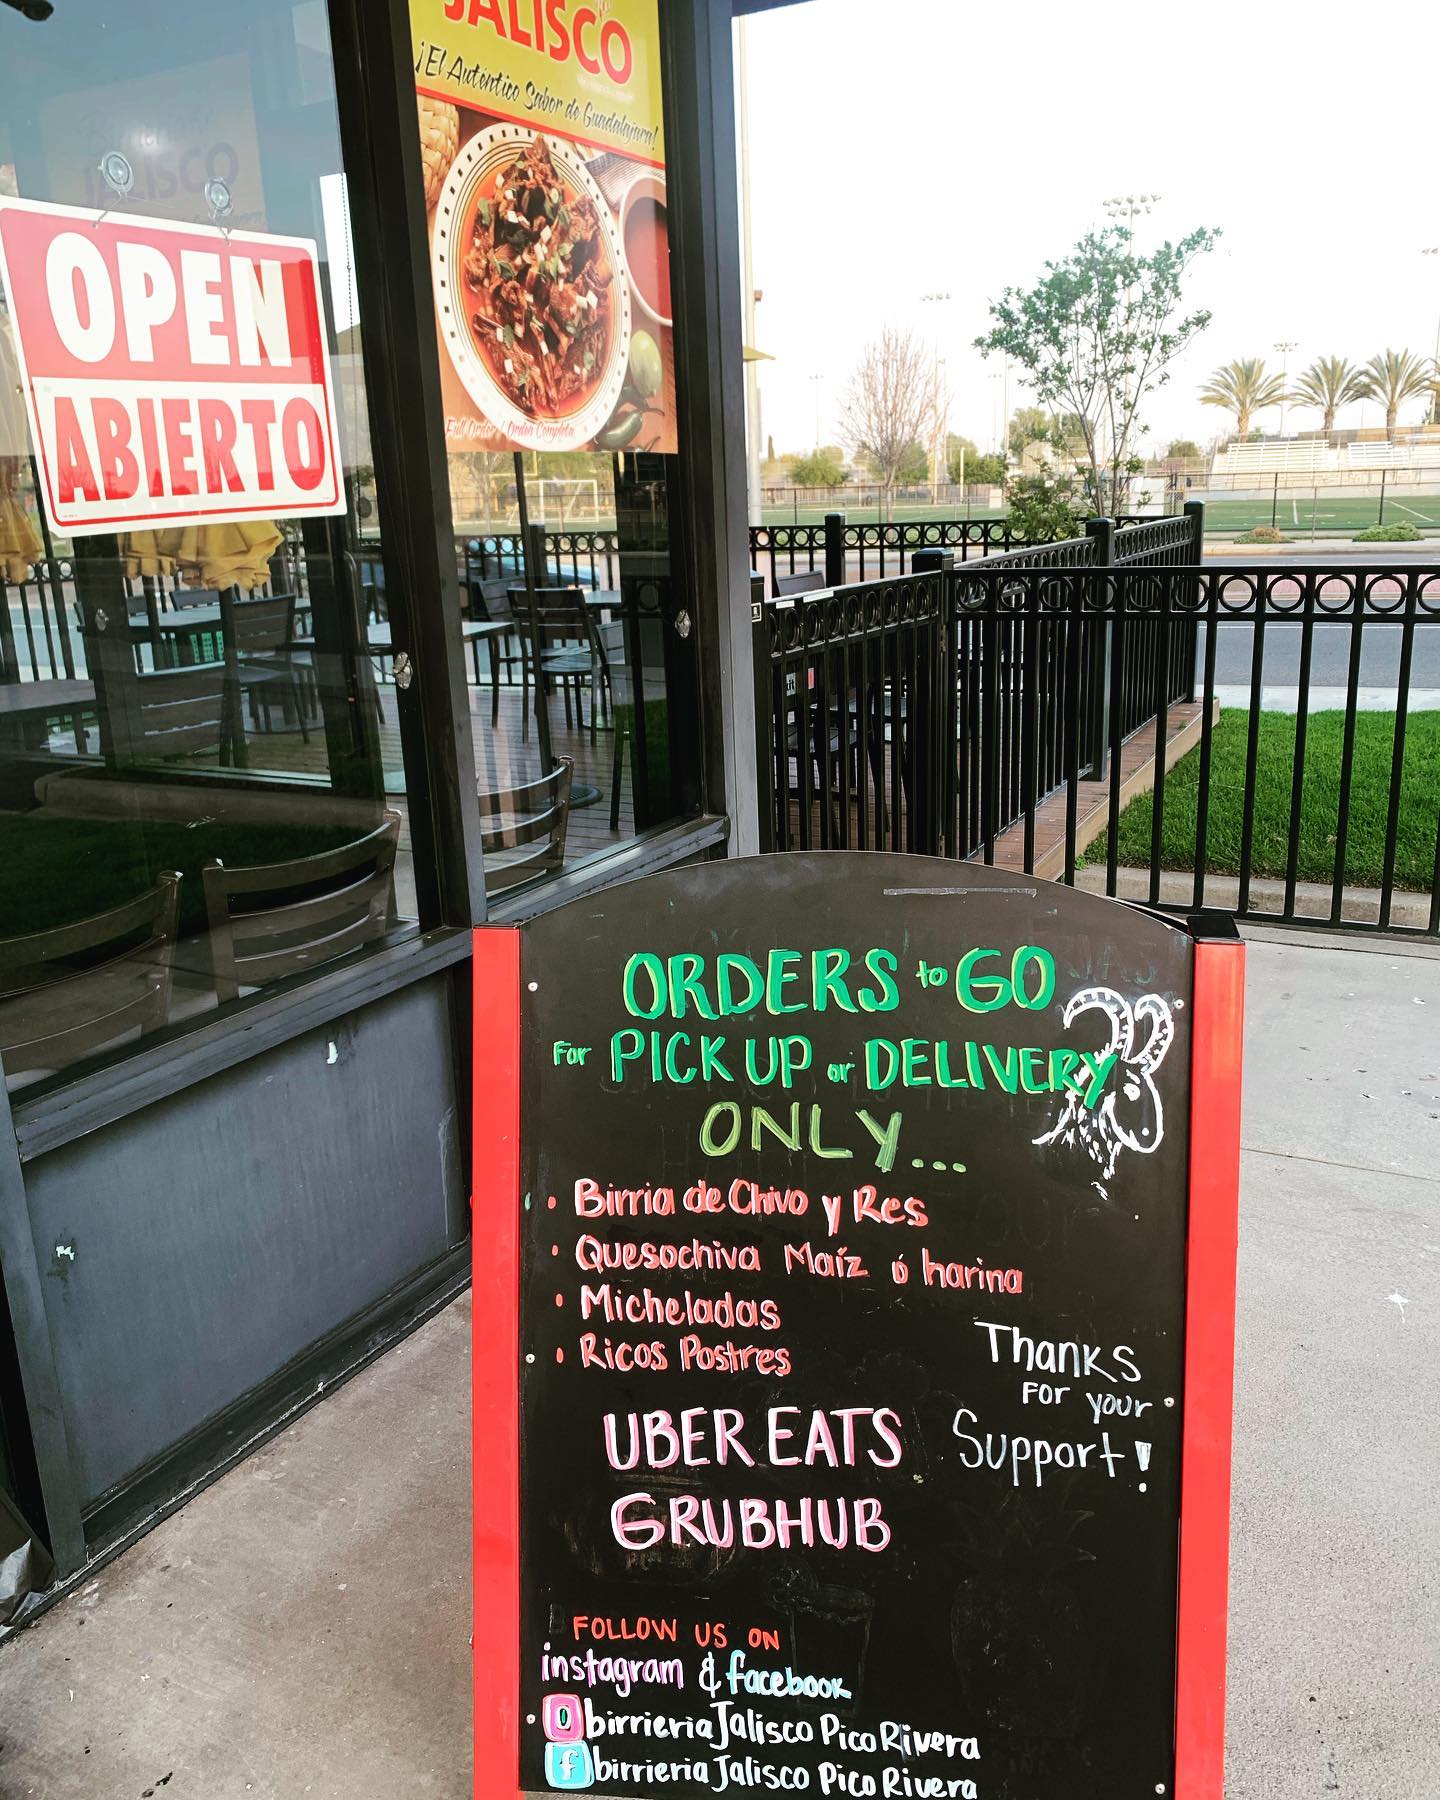 JALISCO
¡El Auténtico Sabor de Guadalajara!
Full Order / Orden Completa
JALISCO
OPEN
ABIERTO
ORDERS to GO
For PICK UP or DELIVERY
ONLY...
• Birria de Chivo y Res
• Quesochiva Maíz ó harina
• Micheladas
• Ricos Postres
Thanks
For your
Support!
UBER EATS
GRUBHUB
FOLLOW US ON
instagram & facebook
birrieria Jalisco Pico Rivera
f birrieria Jalisco Pico Rivera